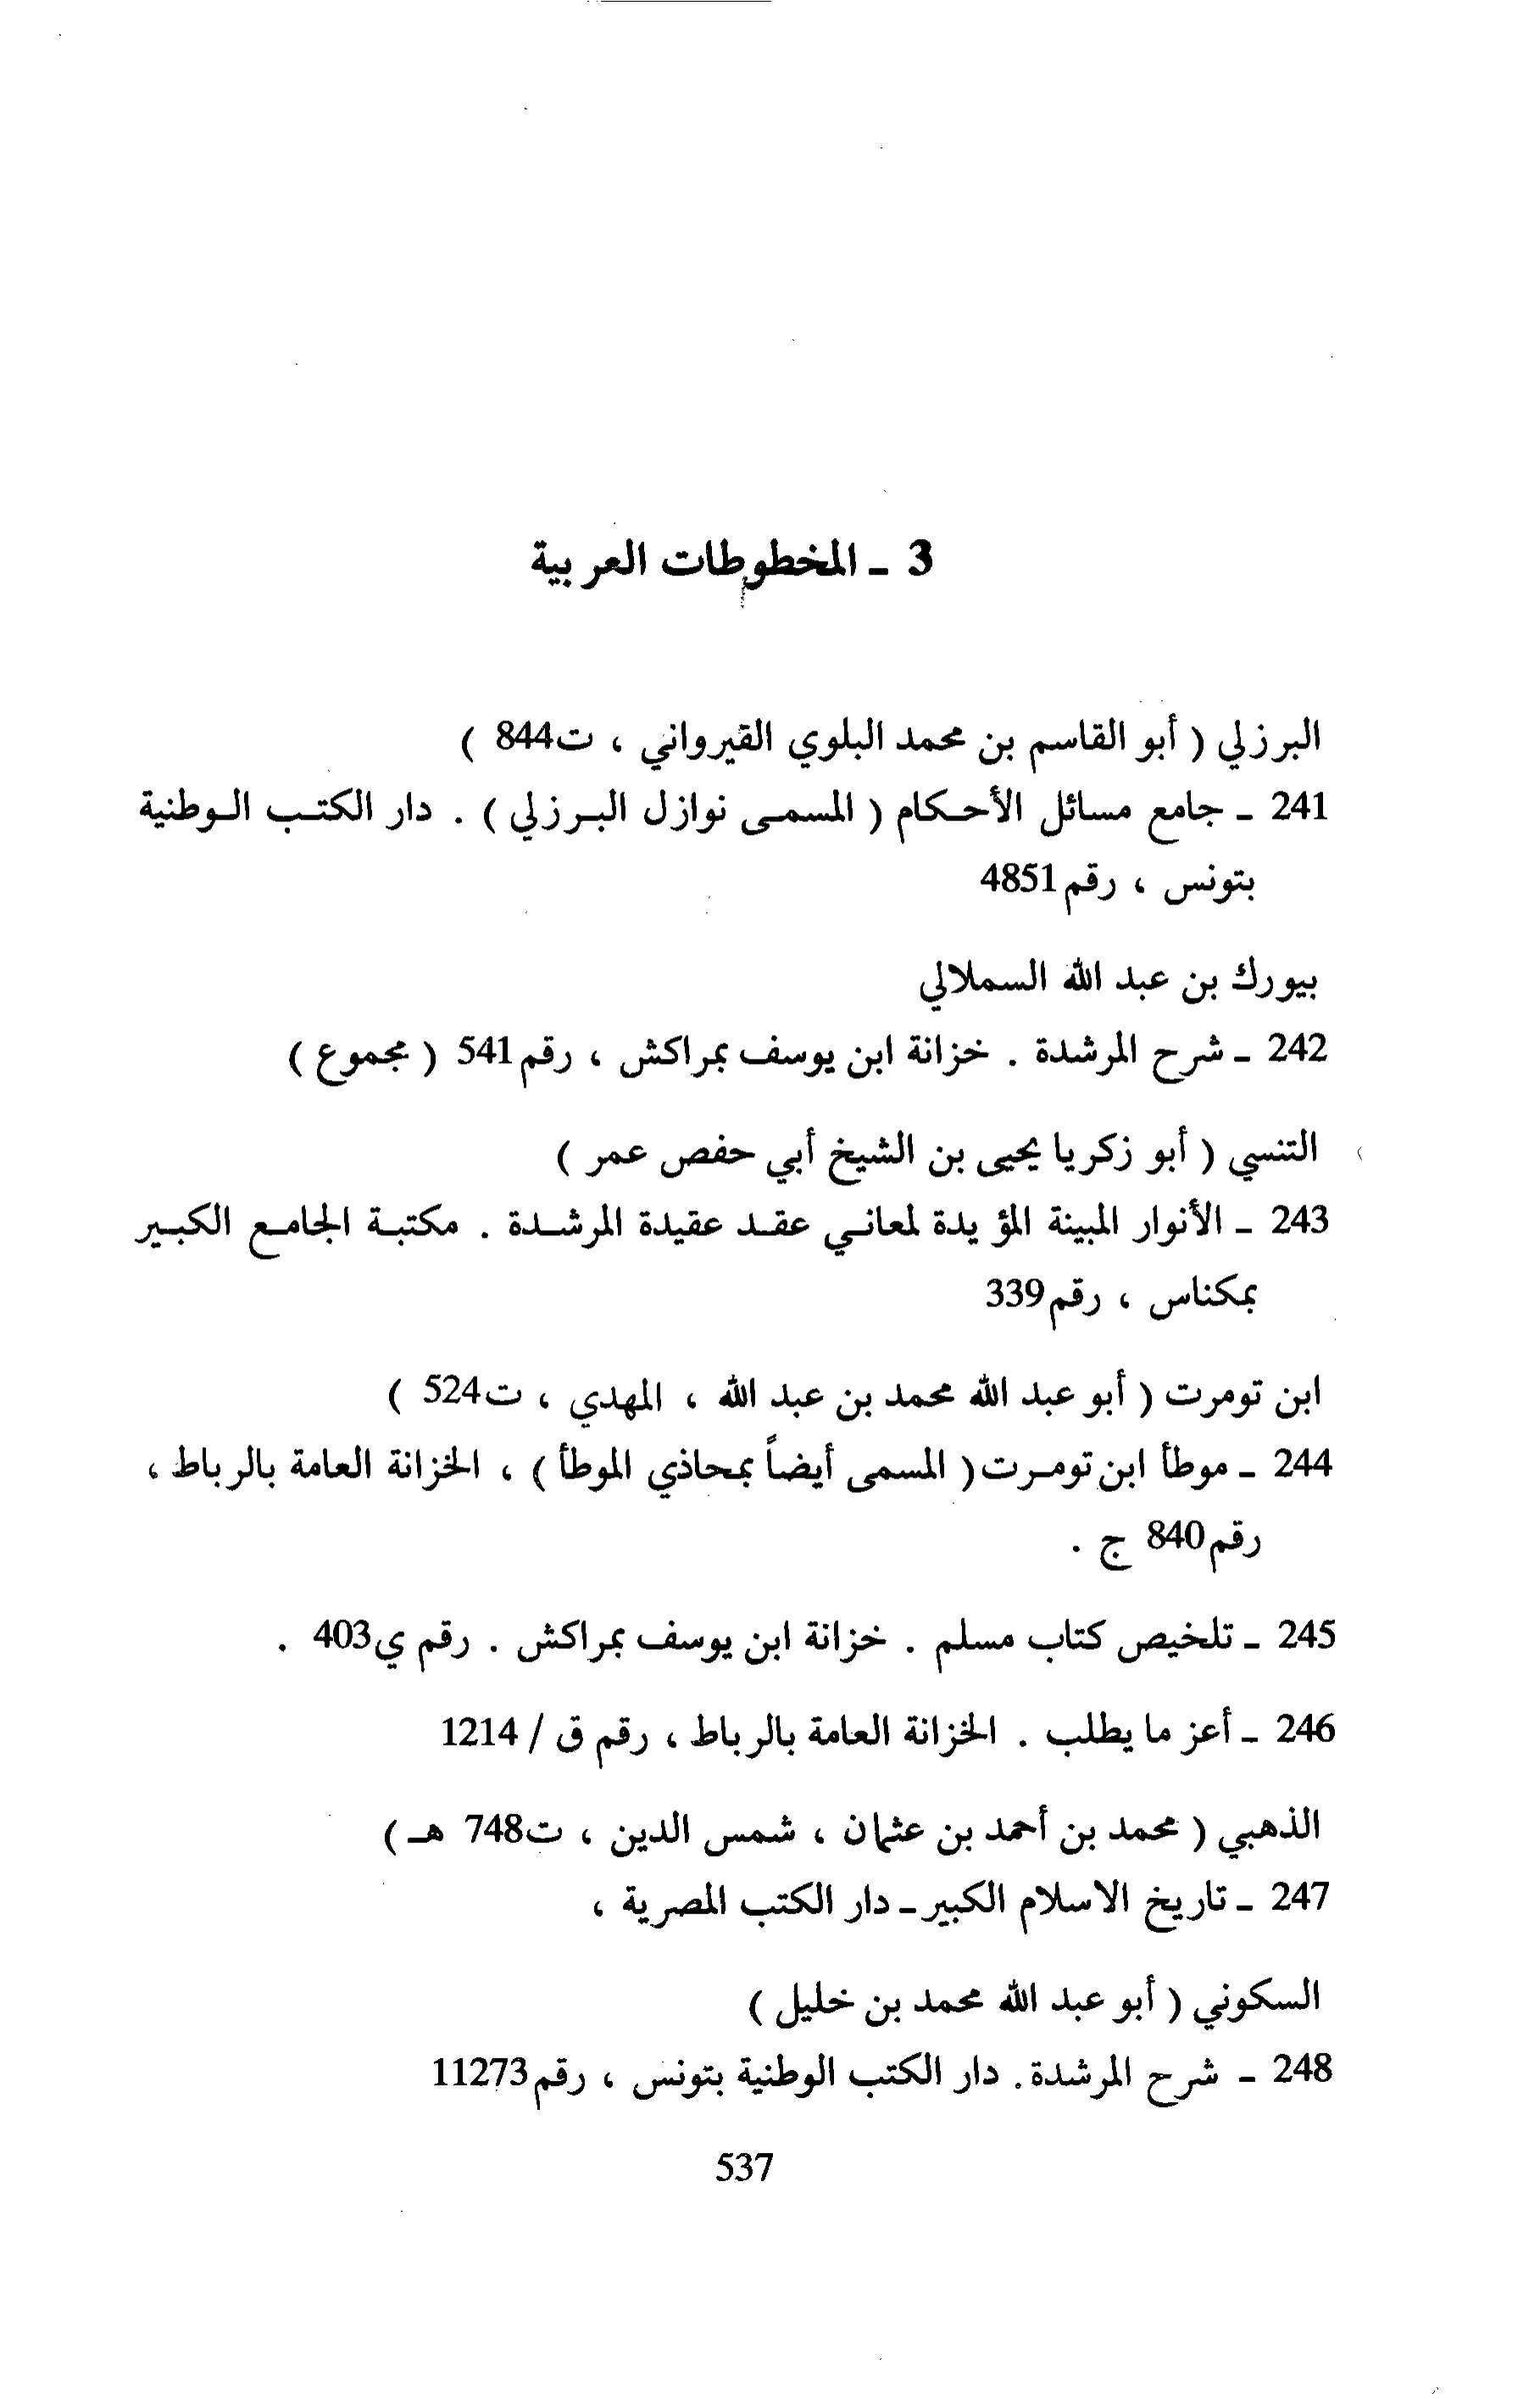 3 - المخطوطات العربية
البرزلي ( أبو القاسم بن محمد البلوي القيرواني ، ت844 )
241 - جامع مسائل الأحكام ( المسمى نوازل البرزلي ) . دار الكتب الوطنية
بتونس ، رقم4851
بيورك بن عبد الله السملالي
242 - شرح المرشدة . خزانة ابن يوسف بمراكش ، رقم541 ( مجموع )
التنسي ( أبو زكريا يحيى بن الشيخ أبي حفص عمر )
243 - الأنوار المبينة المؤيدة لمعاني عقد عقيدة المرشدة . مكتبة الجامع الكبير
بمكناس ، رقم339
ابن تومرت ( أبو عبد الله محمد بن عبد الله ، المهدي ، ت524 )
244 - موطأ ابن تومرت ( المسمى أيضاً بمحاذي الموطأ ) ، الخزانة العامة بالرباط ،
رقم840 ج .
245 - تلخيص كتاب مسلم . خزانة ابن يوسف بمراكش . رقم ي403 .
246 - أعز ما يطلب . الخزانة العامة بالرباط ، رقم ق / 1214
الذهبي ( محمد بن أحمد بن عثمان ، شمس الدين ، ت748 هـ )
247 - تاريخ الاسلام الكبير - دار الكتب المصرية ،
السكوني ( أبو عبد الله محمد بن خليل )
248 - شرح المرشدة . دار الكتب الوطنية بتونس ، رقم11273
537